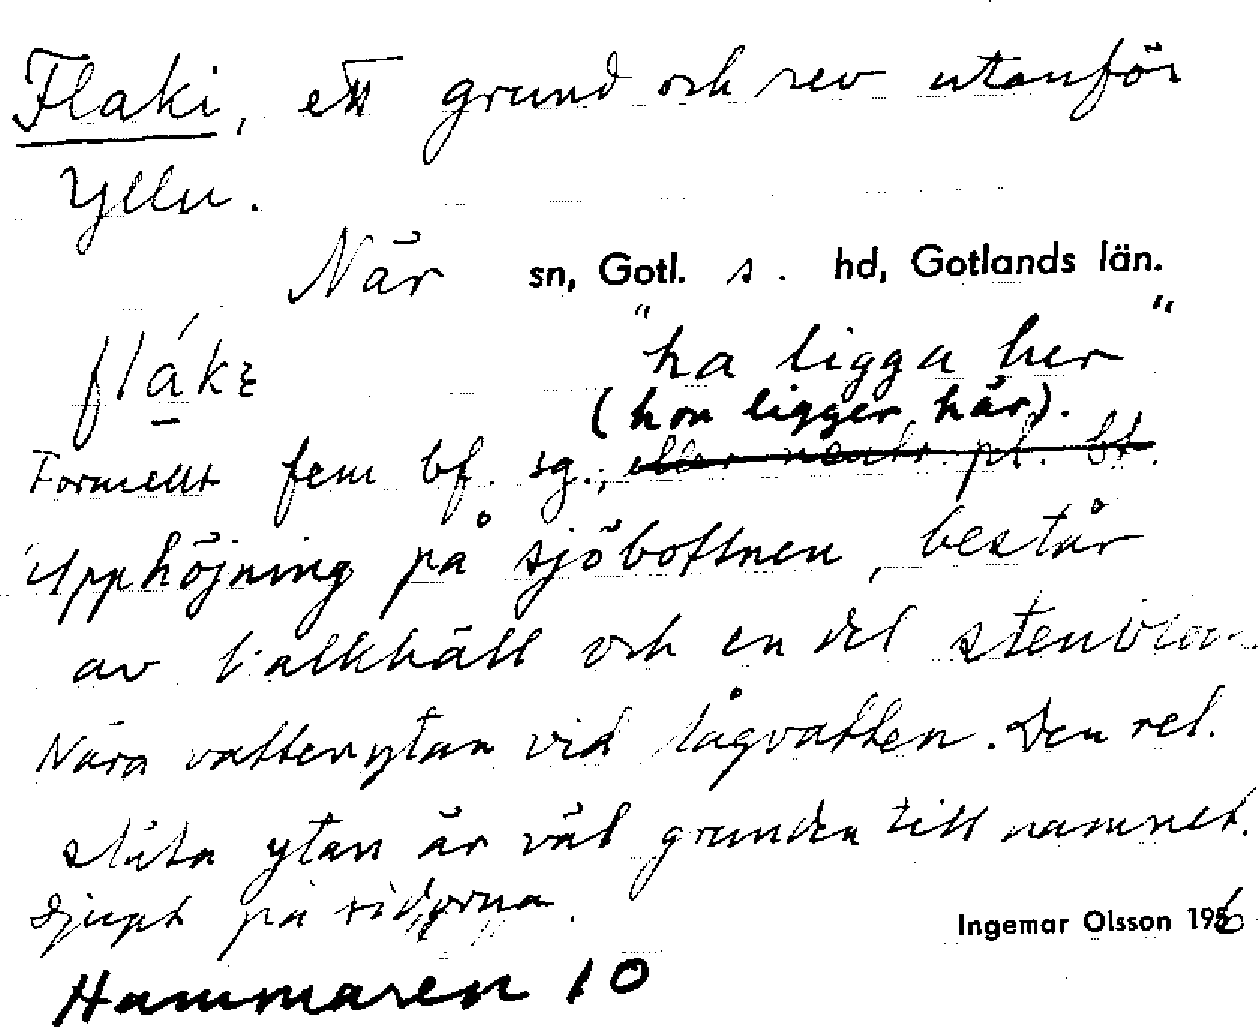 Flaki, ett grund och rev utanför
Ylln.
När sn, Gotl. s. hd, Gotlands län.
"ha ligga her"
(hon ligger här).
Formellt fem bf. sg., eller neutr. pl. bf.
Upphöjning på sjöbottnen, består
av kalkhäll och en del
Nära vattenytan vid lågvatten. Den rel.
släta ytan är väl grunden till namnet.
Djupt på sidorna.
Ingemar Olsson 1956
Hammaren 10